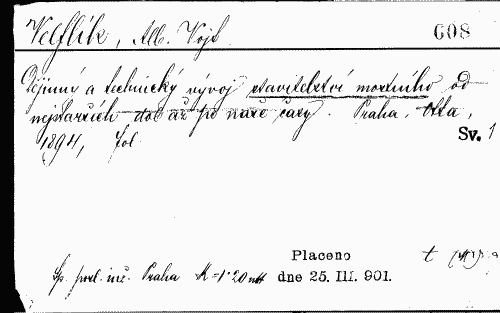 Velflík, Alb. Vojt. 608
Dějinný a technický vývoj stavitelství mostního od
nejstarších dob až po naše časy. Praha, Otta,
1894, fol. Sv. 1
Placeno
Praha K = 1·20 dne 25. III. 901.